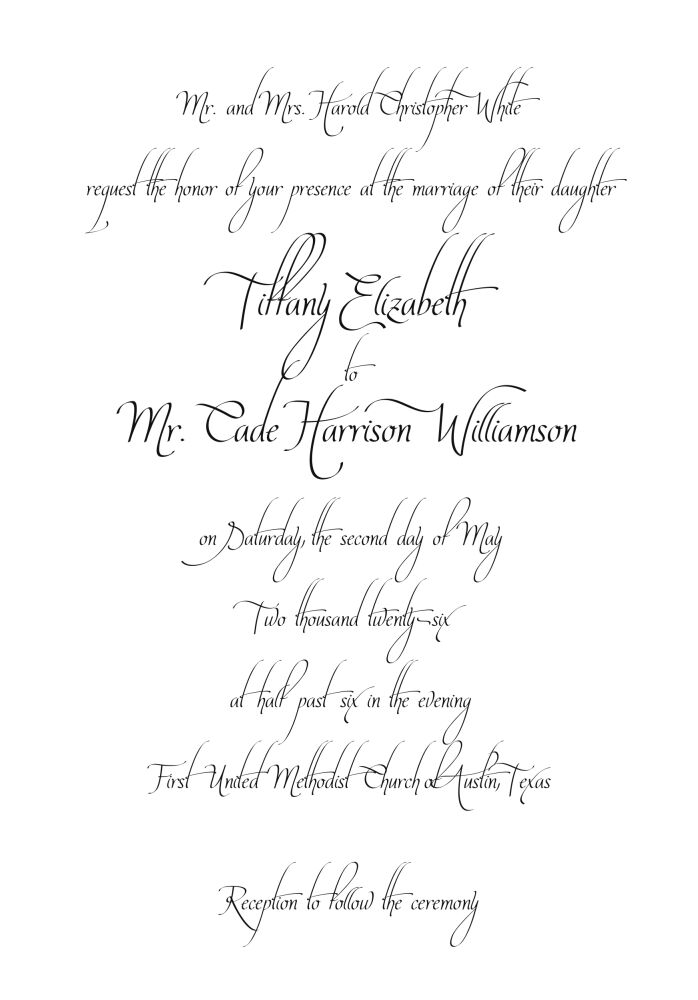 Mr. and Mrs. Harold Christopher White
request the honor of your presence at the marriage of their daughter
Tiffany Elizabeth
to
Mr. Cade Harrison Williamson
on Saturday, the second day of May
Two thousand twenty-six
at half past six in the evening
First United Methodist Church of Austin, Texas
Reception to follow the ceremony